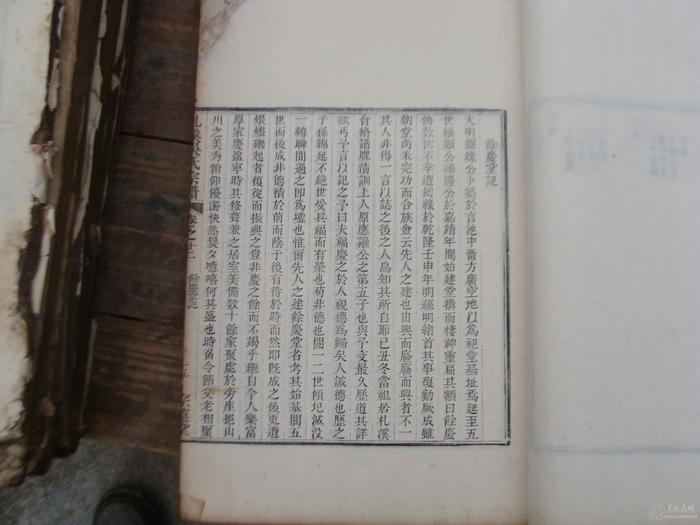 餘慶堂記
大明關緣公卜築於言池中嗇方廣空地以為祀堂基址焉延至五
世福顯公福隆公於嘉靖年間始建堂構而棲神靈扁其額曰餘慶
傳數世不幸遭囘祿於乾隆壬申年明縣明緒首其事復勷厥成雖
朝堂尚未完功而合族僉云先人之建也由興而廢廢而興者不一
其人非得一言以誌之後之人烏知其所自耶已丑冬當祖居札溪
會脩譜牒蒲訓上人原應譲公之第五子也與予交最久歷道其詳
欲丐予言以記之予曰夫福慶之於人視德為歸矣人誠德也歷之
子孫綿延不絶世受其福而有榮也苟非德也閱一二世傾圮滅没
一轉瞬間過之即為墟也惟爾先人之建餘慶堂者考其始基閱五
世而後成非德積於前而蔭于後有待於時而然耶既成之後更遭
緩繼起者復從而振興之豈非慶之餘而不竭乎繼自今人樂富
厚家慶盈寧時其修葺兼之居室美備數十餘家聚處於旁座挹山
川之美秀俯仰優游快然猥夕噫嘻何其盛也時當令節父老相聚
氏宗譜 卷之十二 餘慶堂記